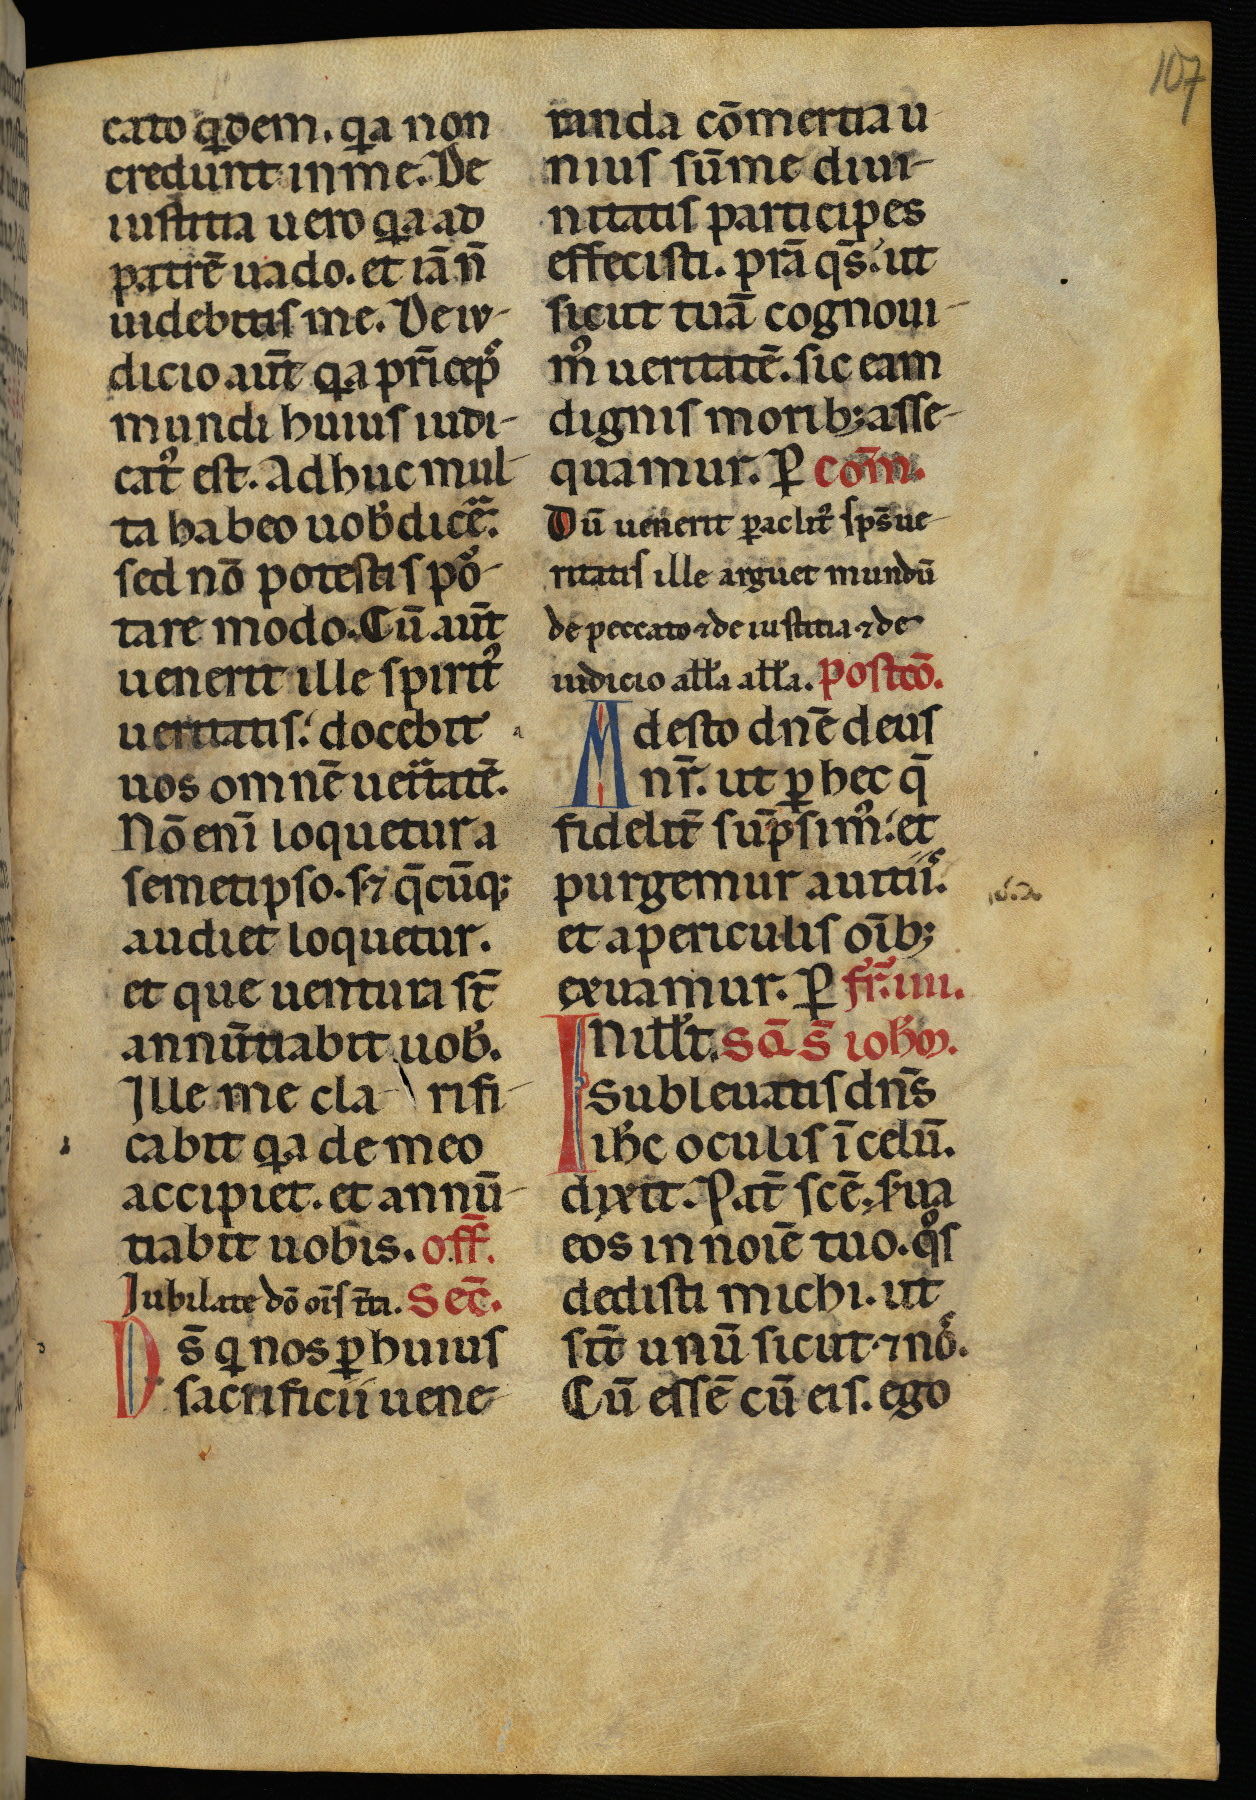 107
cato qͥdem. qͥa non
credunt in me. De
iustitia uero qͥa ad
patrē uado. et iā n̄
uidebitis me. De iu-
dicio aut̄ qͥa prīcepˢ
mundi huius iudi-
catꝰ est. Adhuc mul-
ta habeo uob̄ dicͤ̄.
sed nō potestis poͬ-
tare modo. Cū aut̄
uenerit ille spiritꝰ
ueritatis. docebit
uos omnē ueͥtatē.
Nō enī loquetur a
semetipso. s; qͣ̄cūq;
audiet loquetur.
et que uentura st̄
annūtiabit uob̄.
Ille me cla rifi-
cabit qͥa de meo
accipiet. et annū-
tiabit uobis. off̄.
Iubilate dō oīs t̄ra. Sec̄.
Ds̄ qͥ nos ꝑ huius
sacrificii uene-
randa cōmertia u-
nius sūme diui-
nitatis participes
effecisti. pr̄a qs̄. ut
sicut tuā cognoui-
mꝰ ueritatē. sic eam
dignis morib; asse-
quamur. P̲ com̄.
Dū uenerit ꝑaclitꝰ sps̄ ue-
ritatis ille arguet mundū
de peccato ⁊ de iustitia ⁊ de
iudicio all̄a all̄a. Postcō.
Adesto dn̄e deus
nr̄. ut ꝑ hec q̄
fidelit̄ sūpsimꝰ. et
purgemur a uitiiˢ.
et a periculis oīb;
exuamur. P̲ fr̄. iiii.
In ill̄t. Sqͣ̄ s̄ ioh̄m.
Subleuatis dn̄s
ih̄c oculis ī celū.
dixit. Pat̄ scē. s̄ua
eos in noīe tuo. qͦs
dedisti michi. ut
sit̄ unū sicut ⁊ noˢ.
Cū essē cū eis. ego